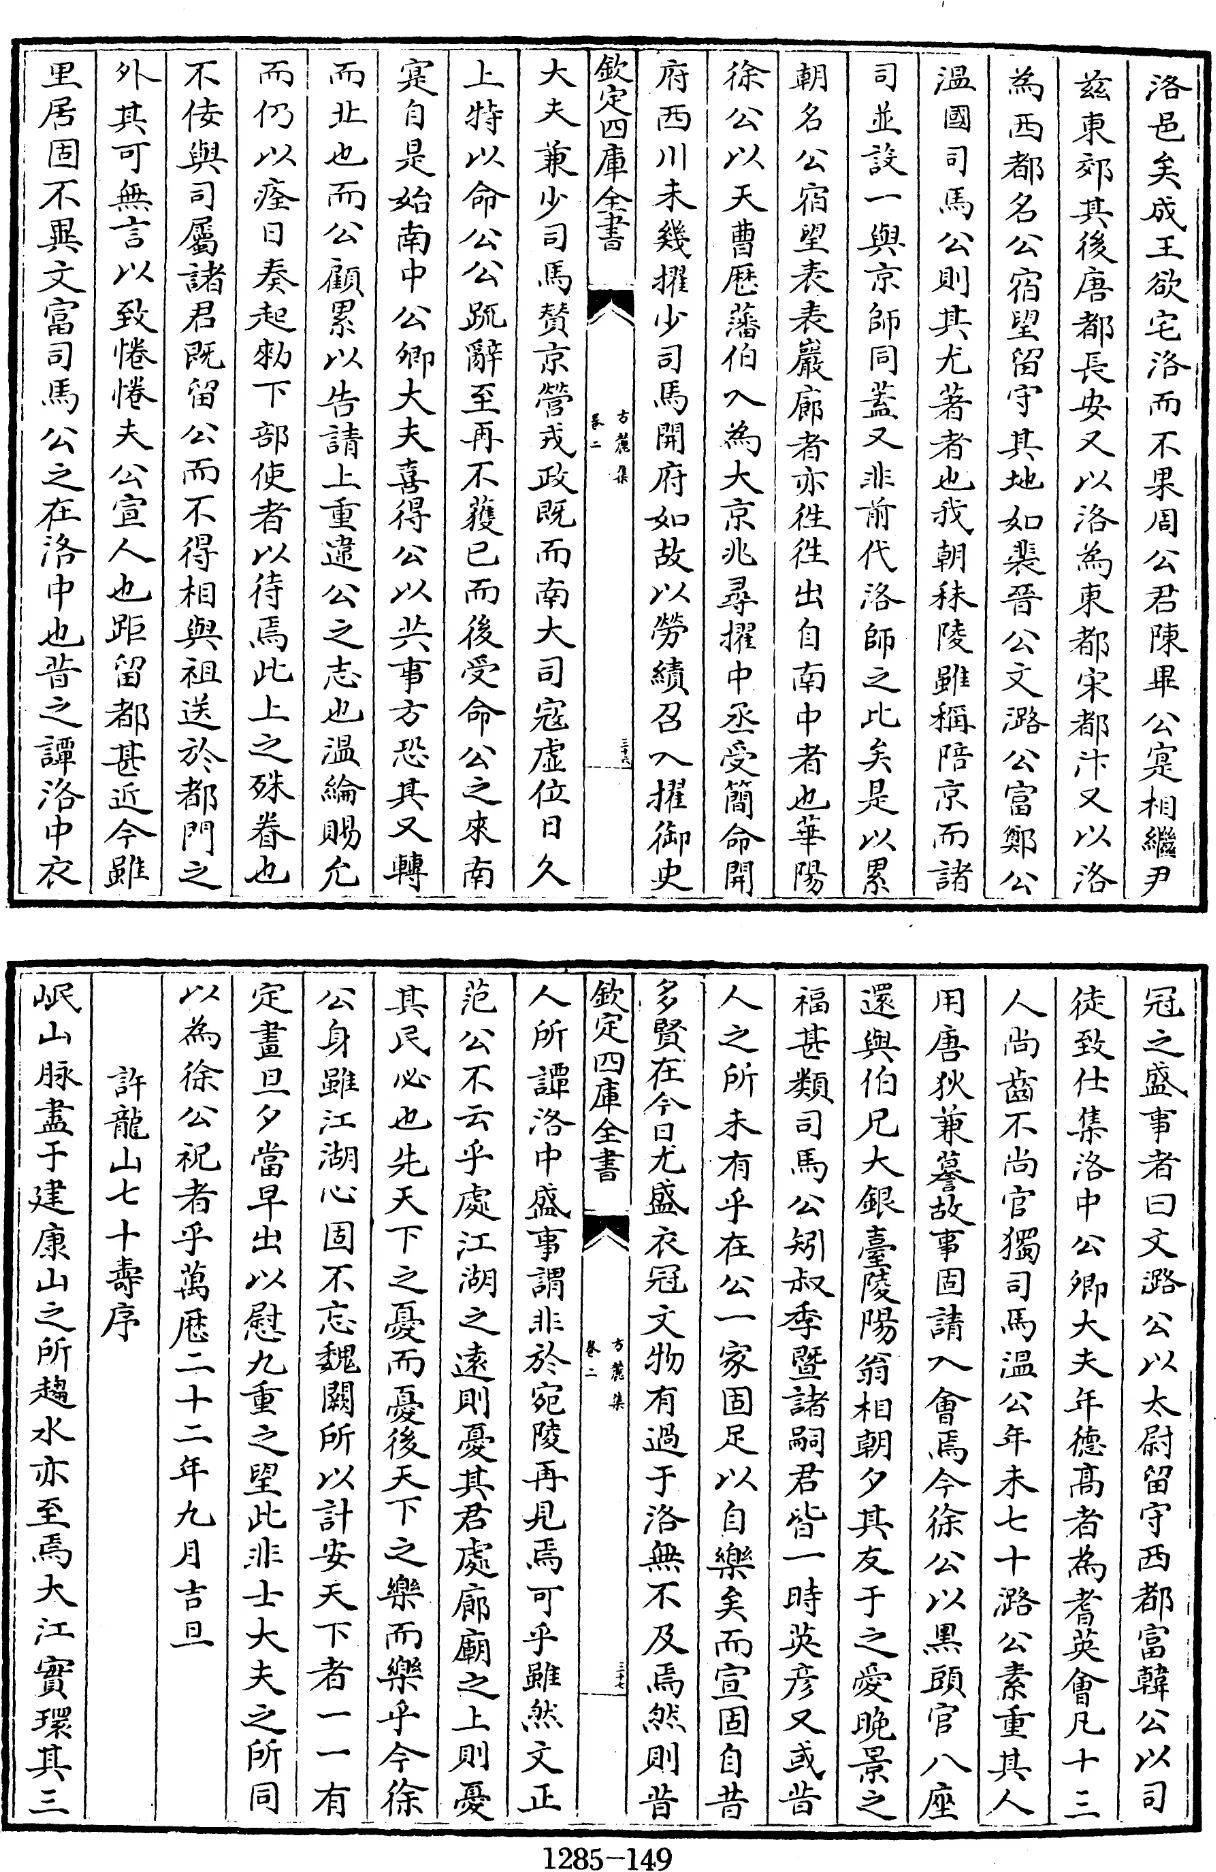 洛邑矣成王欲宅洛而不果周公君陳畢公寔相繼尹
兹東郊其後唐都長安又以洛為東都宋都汴又以洛
為西都名公宿望留守其地如裴晉公文潞公富鄭公
温國司馬公則其尤著者也我朝秣陵雖稱陪京而諸
司並設一與京師同蓋又非前代洛師之比矣是以累
朝名公宿望表表巖廊者亦徃徃出自南中者也華陽
徐公以天曹歴藩伯入為大京兆尋擢中丞受簡命開
府西川未幾擢少司馬開府如故以勞績召入擢御史
欽定四庫全書
方麓集
卷二
三十六
大夫兼少司馬賛京營戎政既而南大司寇虛位日久
上特以命公公疏辭至再不獲已而後受命公之來南
寔自是始南中公卿大夫喜得公以共事方恐其又轉
而北也而公顧累以告請上重違公之志也温綸賜允
而仍以痊日奏起勑下部使者以待焉此上之殊眷也
不佞與司屬諸君既留公而不得相與祖送於都門之
外其可無言以致惓惓夫公宣人也距留都甚近今雖
里居固不異文富司馬公之在洛中也昔之譚洛中衣
冠之盛事者曰文潞公以太尉留守西都富韓公以司
徒致仕集洛中公卿大夫年德髙者為耆英會凡十三
人尚齒不尚官獨司馬温公年未七十潞公素重其人
用唐狄兼謩故事固請入會焉今徐公以黒頭官八座
還與伯兄大銀臺陵陽翁相朝夕其友于之愛晚景之
福甚類司馬公矧叔季暨諸嗣君皆一時英彦又或昔
人之所未有乎在公一家固足以自樂矣而宣固自昔
多賢在今日尤盛衣冠文物有過于洛無不及焉然則昔
欽定四庫全書
方麓集
卷二
三十七
人所譚洛中盛事謂非於宛陵再見焉可乎雖然文正
范公不云乎處江湖之遠則憂其君處廊廟之上則憂
其民必也先天下之憂而憂後天下之樂而樂乎今徐
公身雖江湖心固不忘魏闕所以計安天下者一一有
定畫旦夕當早出以慰九重之望此非士大夫之所同
以為徐公祝者乎萬歴二十二年九月吉旦
許龍山七十壽序
岷山脉盡于建康山之所趨水亦至焉大江實環其三
1285-149